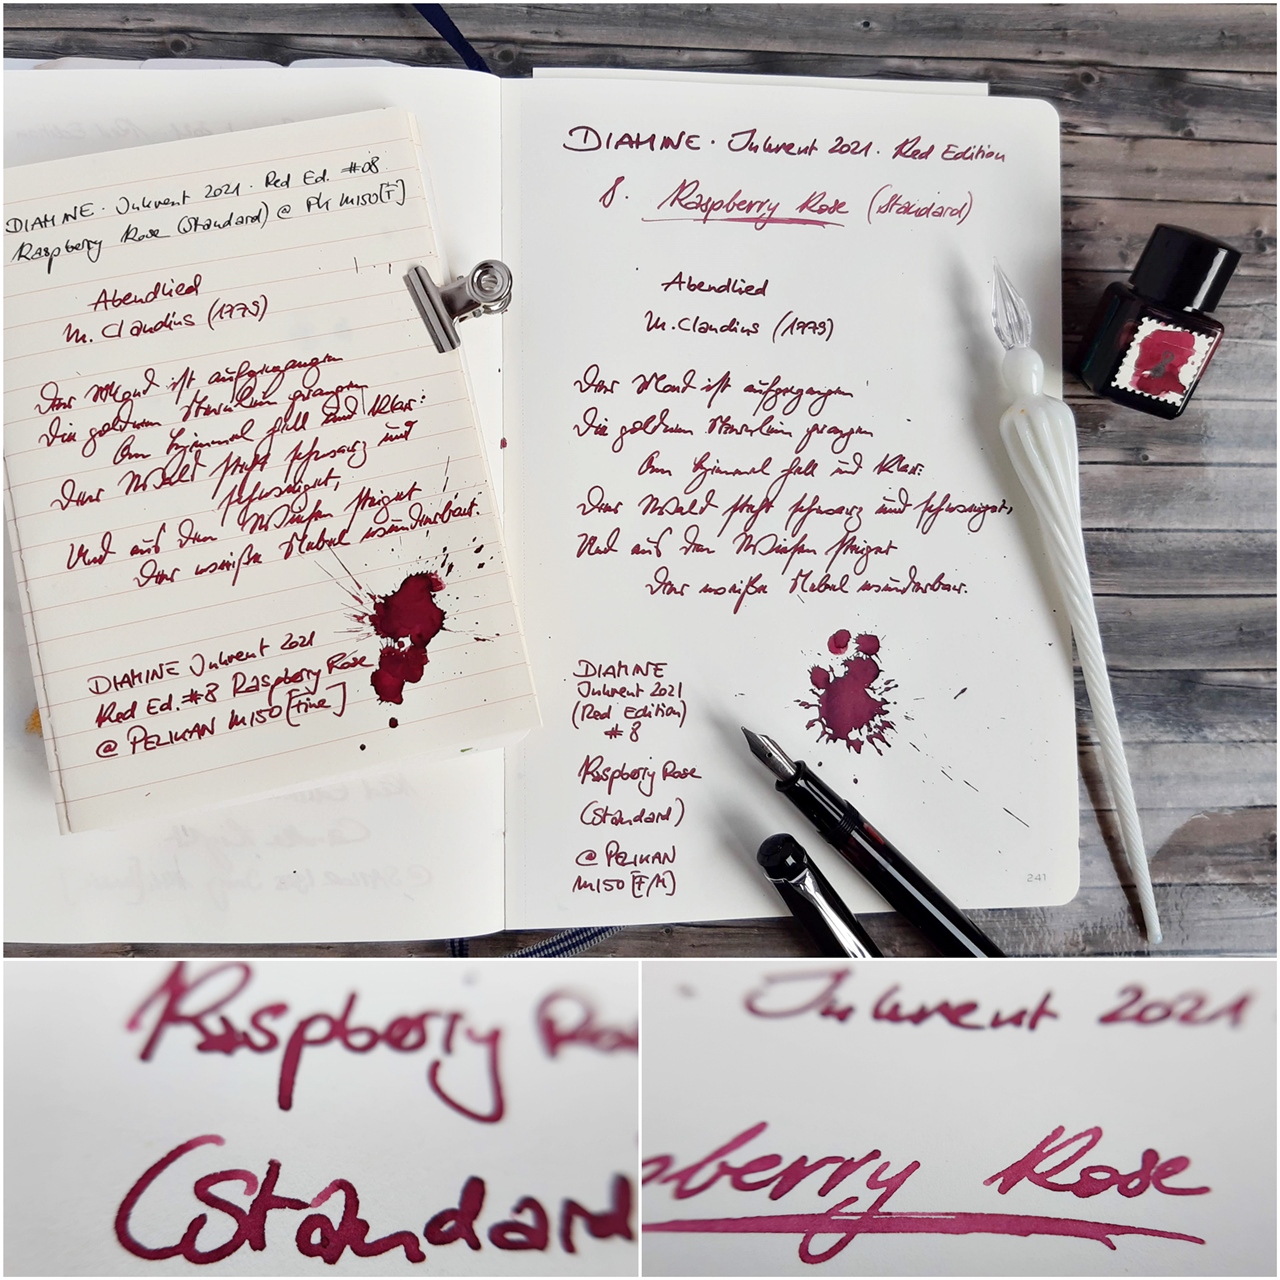 DIAMINE · Inkvent 2021 · Red Ed. #08
Raspberry Rose (Standard) @ PK M150[F]
Abendlied
M. Claudius (1779)
Der Mond ist aufgegangen
Die goldnen Sternlein prangen
Am Himmel hell und klar:
Der Wald steht schwarz und
schweiget,
Und aus den Wiesen steiget
Der weiße Nebel wunderbar.
DIAMINE Inkvent 2021
Red Ed. #8 Raspberry Rose
@ PELIKAN M150 [Fine]
DIAMINE · Inkvent 2021 · Red Edition
8. Raspberry Rose (Standard)
Abendlied
M. Claudius (1779)
Der Mond ist aufgegangen
Die goldnen Sternlein prangen
Am Himmel hell und klar.
Der Wald steht schwarz und schweiget,
Und aus den Wiesen steiget
Der weiße Nebel wunderbar.
DIAMINE
Inkvent 2021
(Red Edition)
#8
Raspberry Rose
(Standard)
@ PELIKAN
M150 [F/M]
241
Raspberry Ro
(Standard
Inkvent 2021
pberry Rose